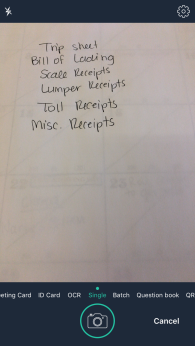 Trip sheet
Bill of Lading
Scale Receipts
Lumper Receipts
Toll Receipts
Misc. Receipts
eeting Card ID Card OCR Single Batch Question book QR
Cancel